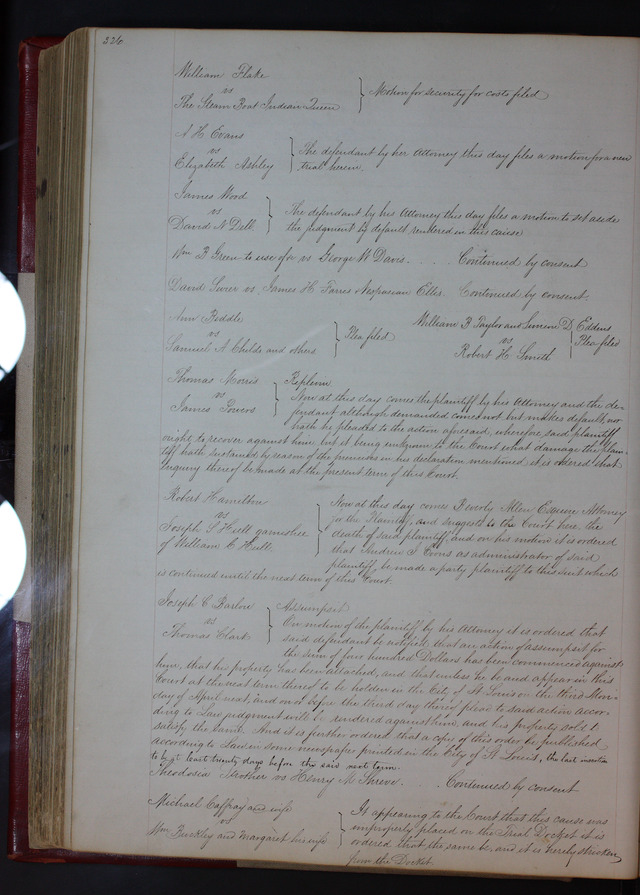 226
William Flake
vs
The Steam Boat Indian Queen } Motion for security for costs filed
A H Evans
vs
Elizabeth Ashley } The defendant by her Attorney this day files a motion for a new
trial herein.
James Wood
vs
David N Dell } The defendant by his Attorney this day files a motion to set aside
the judgment by default rendered in this cause
Wm B Green to use of vs George W Davis. . . . . Continued by consent
David vs. James H Farres Vespasian Ellis. Continued by consent.
Ann Biddle
vs
Samuel A Childs and others } Plea filed
William B Taylor and Simeon D Eddens
vs
Robert H. Smith } Plea filed
Thomas Morris
vs
James Powers } Replevin
Now at this day comes the plaintiff by his Attorney and the de-
fendant although demanded comes not but makes default, nor
hath he pleaded to the action aforesaid, wherefore, said plaintiff
ought to recover against him but it being unknown to the Court what damage the plain-
tiff hath sustained by reason of the premises in his declaration mentioned it is ordered that
inquiry thereof be made at the present term of this Court.
Robert Hamilton
vs
Joseph S Hull garnishee
of William C Hull. } Now at this day comes Beverly Allen Esquire Attorney
for the Plaintiff, and suggests to the Court here, the
death of said plaintiff, and on his motion it is ordered
that Andrew as administrator of said
plaintiff, be made a party plaintiff to this suit which
is continued until the next term of this Court.
Joseph C Barlow
vs
Thomas Clark } Assumpsit
On motion of the plaintiff by his Attorney it is ordered that
said defendant be notified, that an action of assumpsit for
the sum of four hundred Dollars has been commenced against
him, that his property has been attached, and that unless he be and appear in this
Court at the next term thereof to be holden in the City of St Louis on the third Mon-
day of April next, and on or before the third day thereof plead to said action accor-
ding to Law judgement will be rendered against him, and his property sold to
satisfy the same. And it is further ordered that a copy of this order be published
according to Law in some newspaper printed in the City of St Louis, the last insertion
to be at least twenty days before the said next term.
Theodosia Strother vs. Henry M Shreve. . . . Continued by consent
Michael Caffray and wife
vs
Wm Buckley and Margaret his wife } It appearing to the Court that this cause was
improperly placed on the Trial Docket it is
ordered that the same be, and it is hereby stricken
from the Docket.